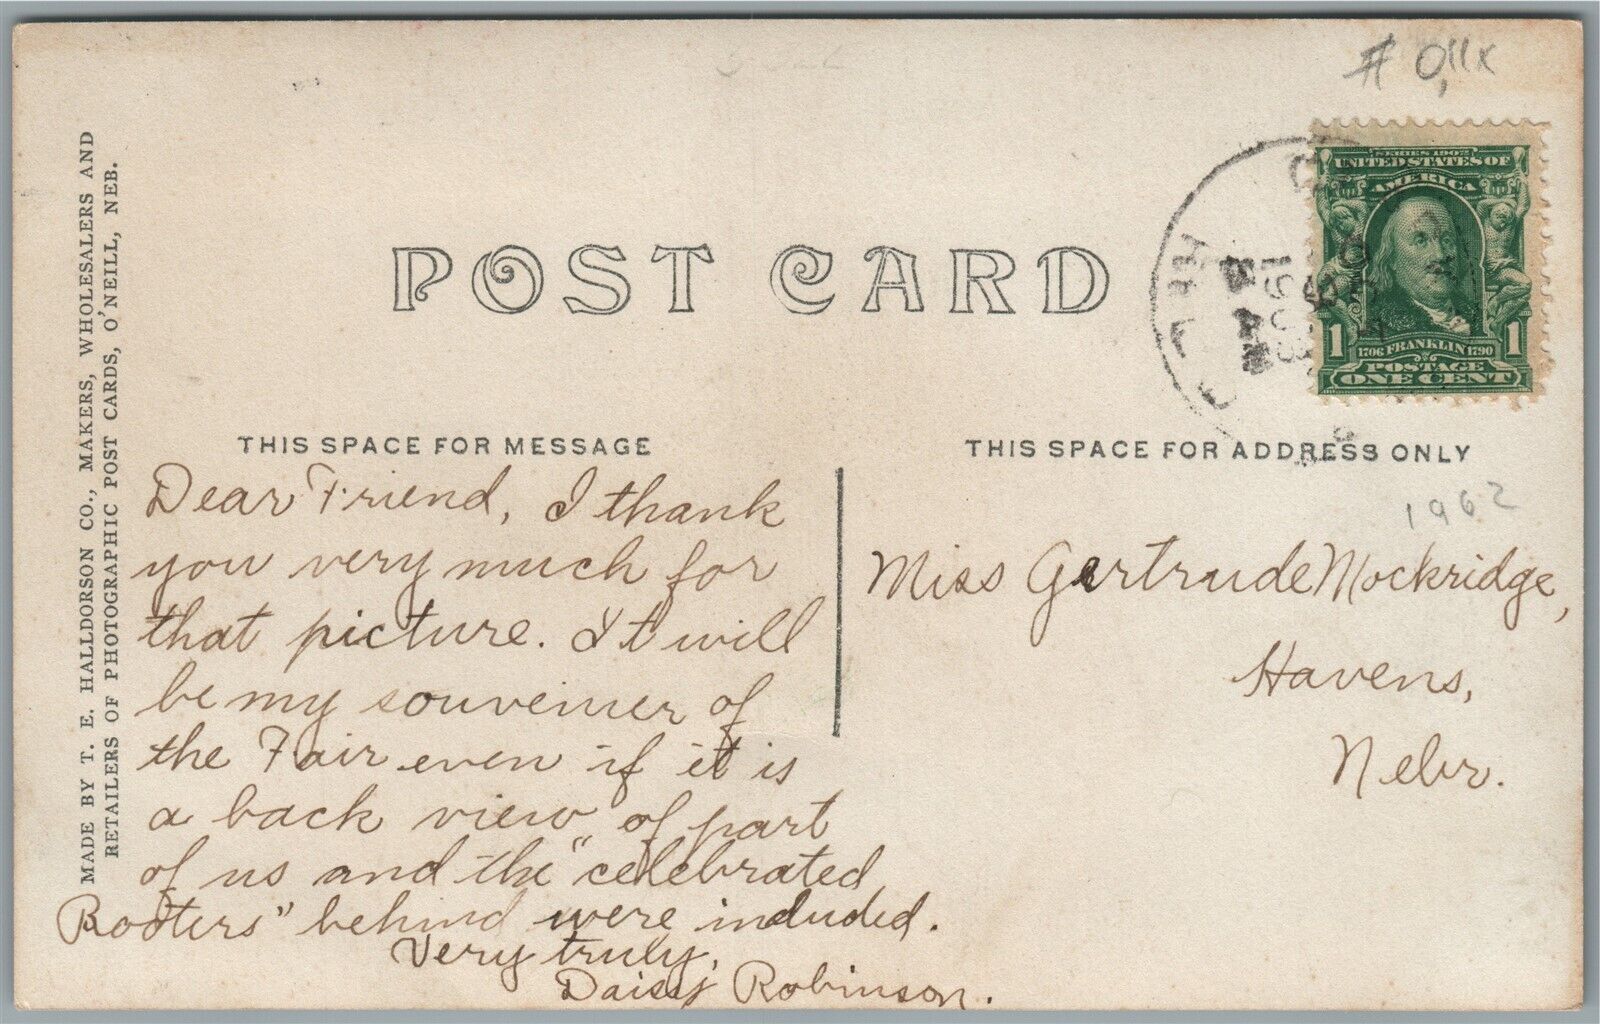 # 0,11x
SERIES 1902
UNITED STATES OF
AMERICA
1 1706 FRANKLIN 1790 1
POSTAGE
ONE CENT
1908
POST CARD
MADE BY T. E. HALLDORSON CO., MAKERS, WHOLESALERS AND
RETAILERS OF PHOTOGRAPHIC POST CARDS, O'NEILL, NEB.
THIS SPACE FOR MESSAGE
Dear Friend, I thank
you very much for
that picture. It will
be my souvenier of
the Fair even if it is
a back view of part
of us and the "celebrated
Rooters" behind were included.
Very truly,
Daisy Robinson.
THIS SPACE FOR ADDRESS ONLY
1962
Miss Gertrude Mockridge,
Havens,
Nebr.